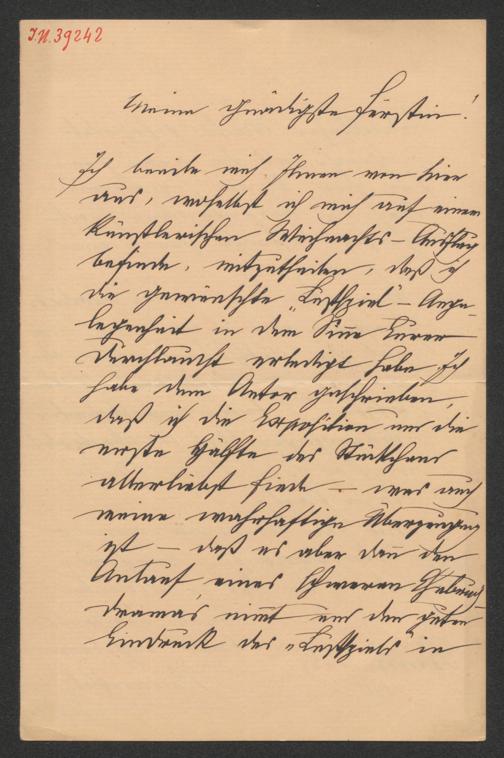 J.N. 39242
Meine gnädigste Fürstin!
Ich beeile mich Ihnen von hier
aus, woselbst ich mich auf einem
künstlerischen Weihnachts-Ausflug
befinde, mitzutheilen, daß ich
die gewünschte „Lustspiel"-Ange-
legenheit in dem Sinne Eurer
Durchlaucht erledigt habe. Ich
habe dem Autor geschrieben,
daß ich die Exposition und die
erste Hälfte des Stückchens
allerliebst finde – was auch
meine wahrhaftige Überzeugung
ist – daß es aber dann den
Anlauf eines schweren
dramas nimmt und den guten
Eindruck des „Lustspiels" in